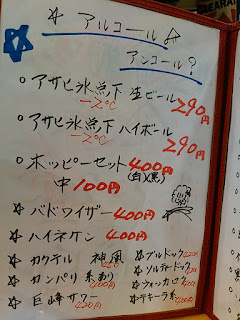 ☆ アルコール ☆
アンコール?
○ アサヒ氷点下 生ビール 290円
-2℃
○ アサヒ氷点下 ハイボール 290円
-2℃
○ ホッピーセット 400円
(白)(黒)
中 100円
☆ バドワイザー 400円
☆ ハイネケン 400円
☆ カクテル 神風 ☆ ブルドック
☆ カンパリ系あり 400円 ☆ ソルティードック
☆ 巨峰サワー 400円 ☆ ウォッカロック
☆ テキーラ系 400円